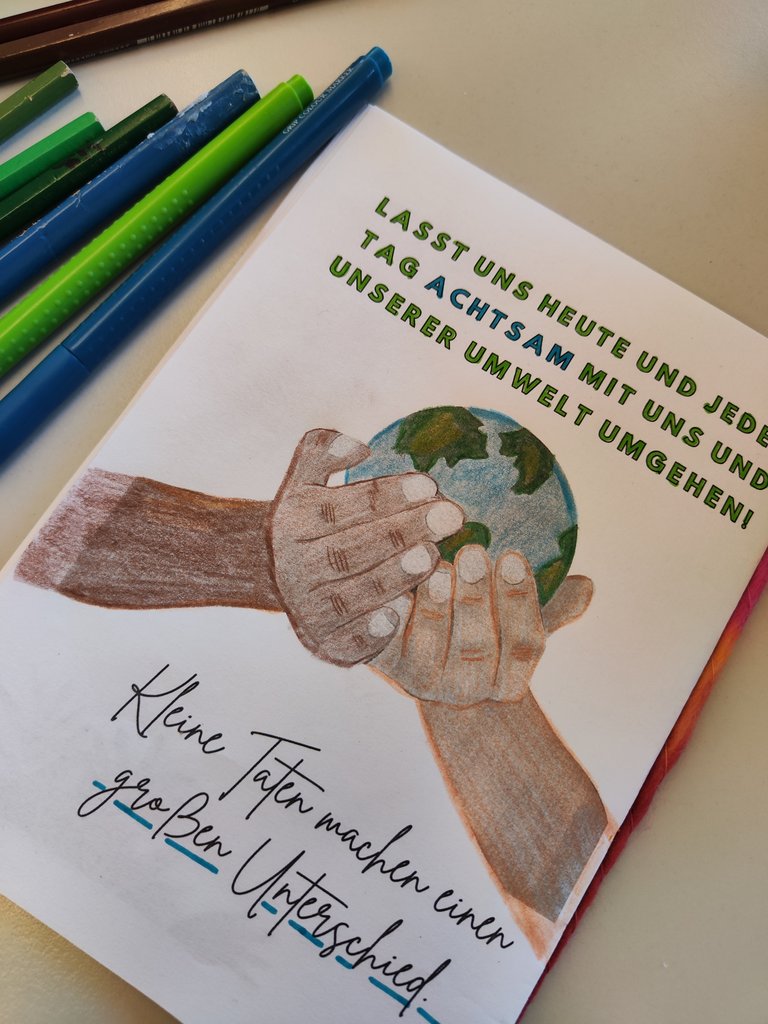 LASST UNS HEUTE UND JEDE
TAG ACHTSAM MIT UNS UND
UNSERER UMWELT UMGEHEN!
Kleine Taten machen einen
großen Unterschied.